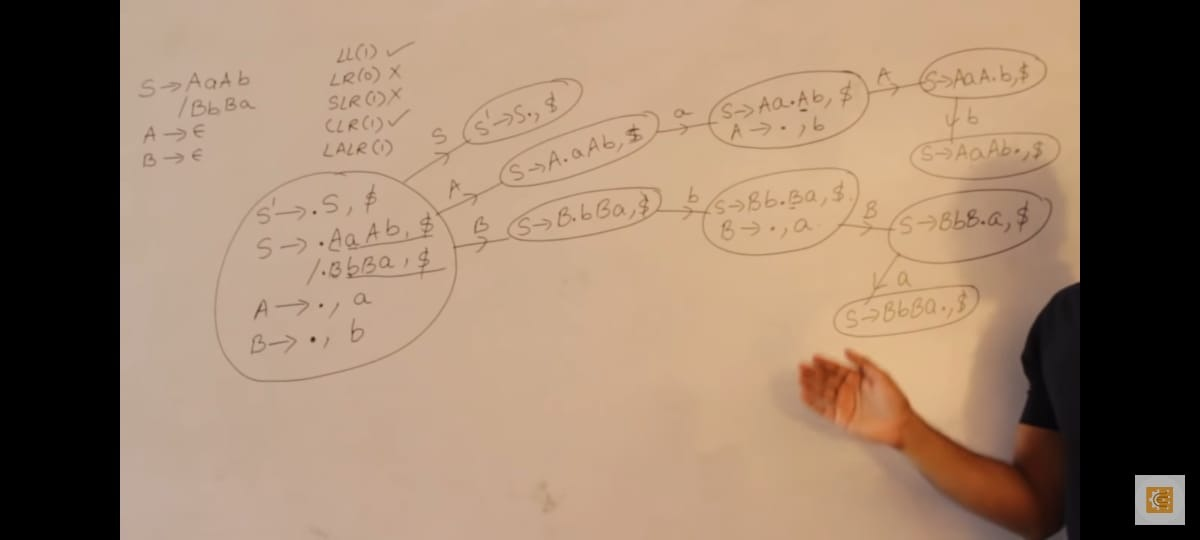 S→AaAb
/BbBa
A→ε
B→ε
LL(1) ✓
LR(0) X
SLR(1) X
CLR(1) ✓
LALR(1)
S'→.S, $
S→.AaAb, $
/.BbBa, $
A→., a
B→., b
S
S'→S., $
A
S→A.aAb, $
a
S→Aa.Ab, $
A→., b
A
S→AaA.b, $
b
S→AaAb., $
B
S→B.bBa, $
b
S→Bb.Ba, $.
B→., a.
B
S→BbB.a, $
a
S→BbBa., $